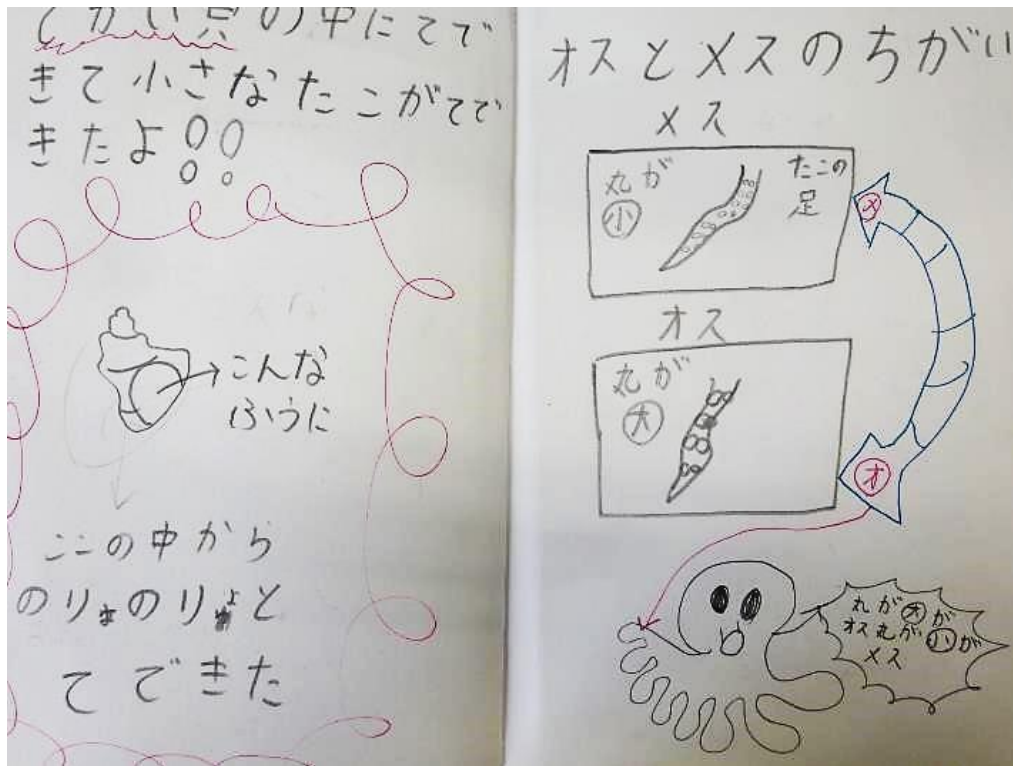 でかい貝の中にてで
きて小さなたこがてで
きたよ!!
こんな
ふうに
ここの中から
のりょのりょと
てできた
オスとメスのちがい
メス
丸が
小
たこの
足
オス
丸が
大
メ
オ
丸が大が
オス丸が小が
メス